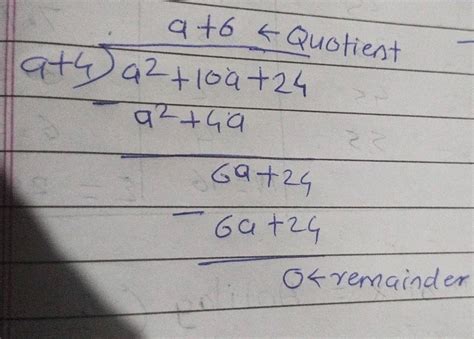 a+6 ← Quotient
a+4) a²+10a+24
- a²+4a
6a+24
- 6a+24
0← remainder